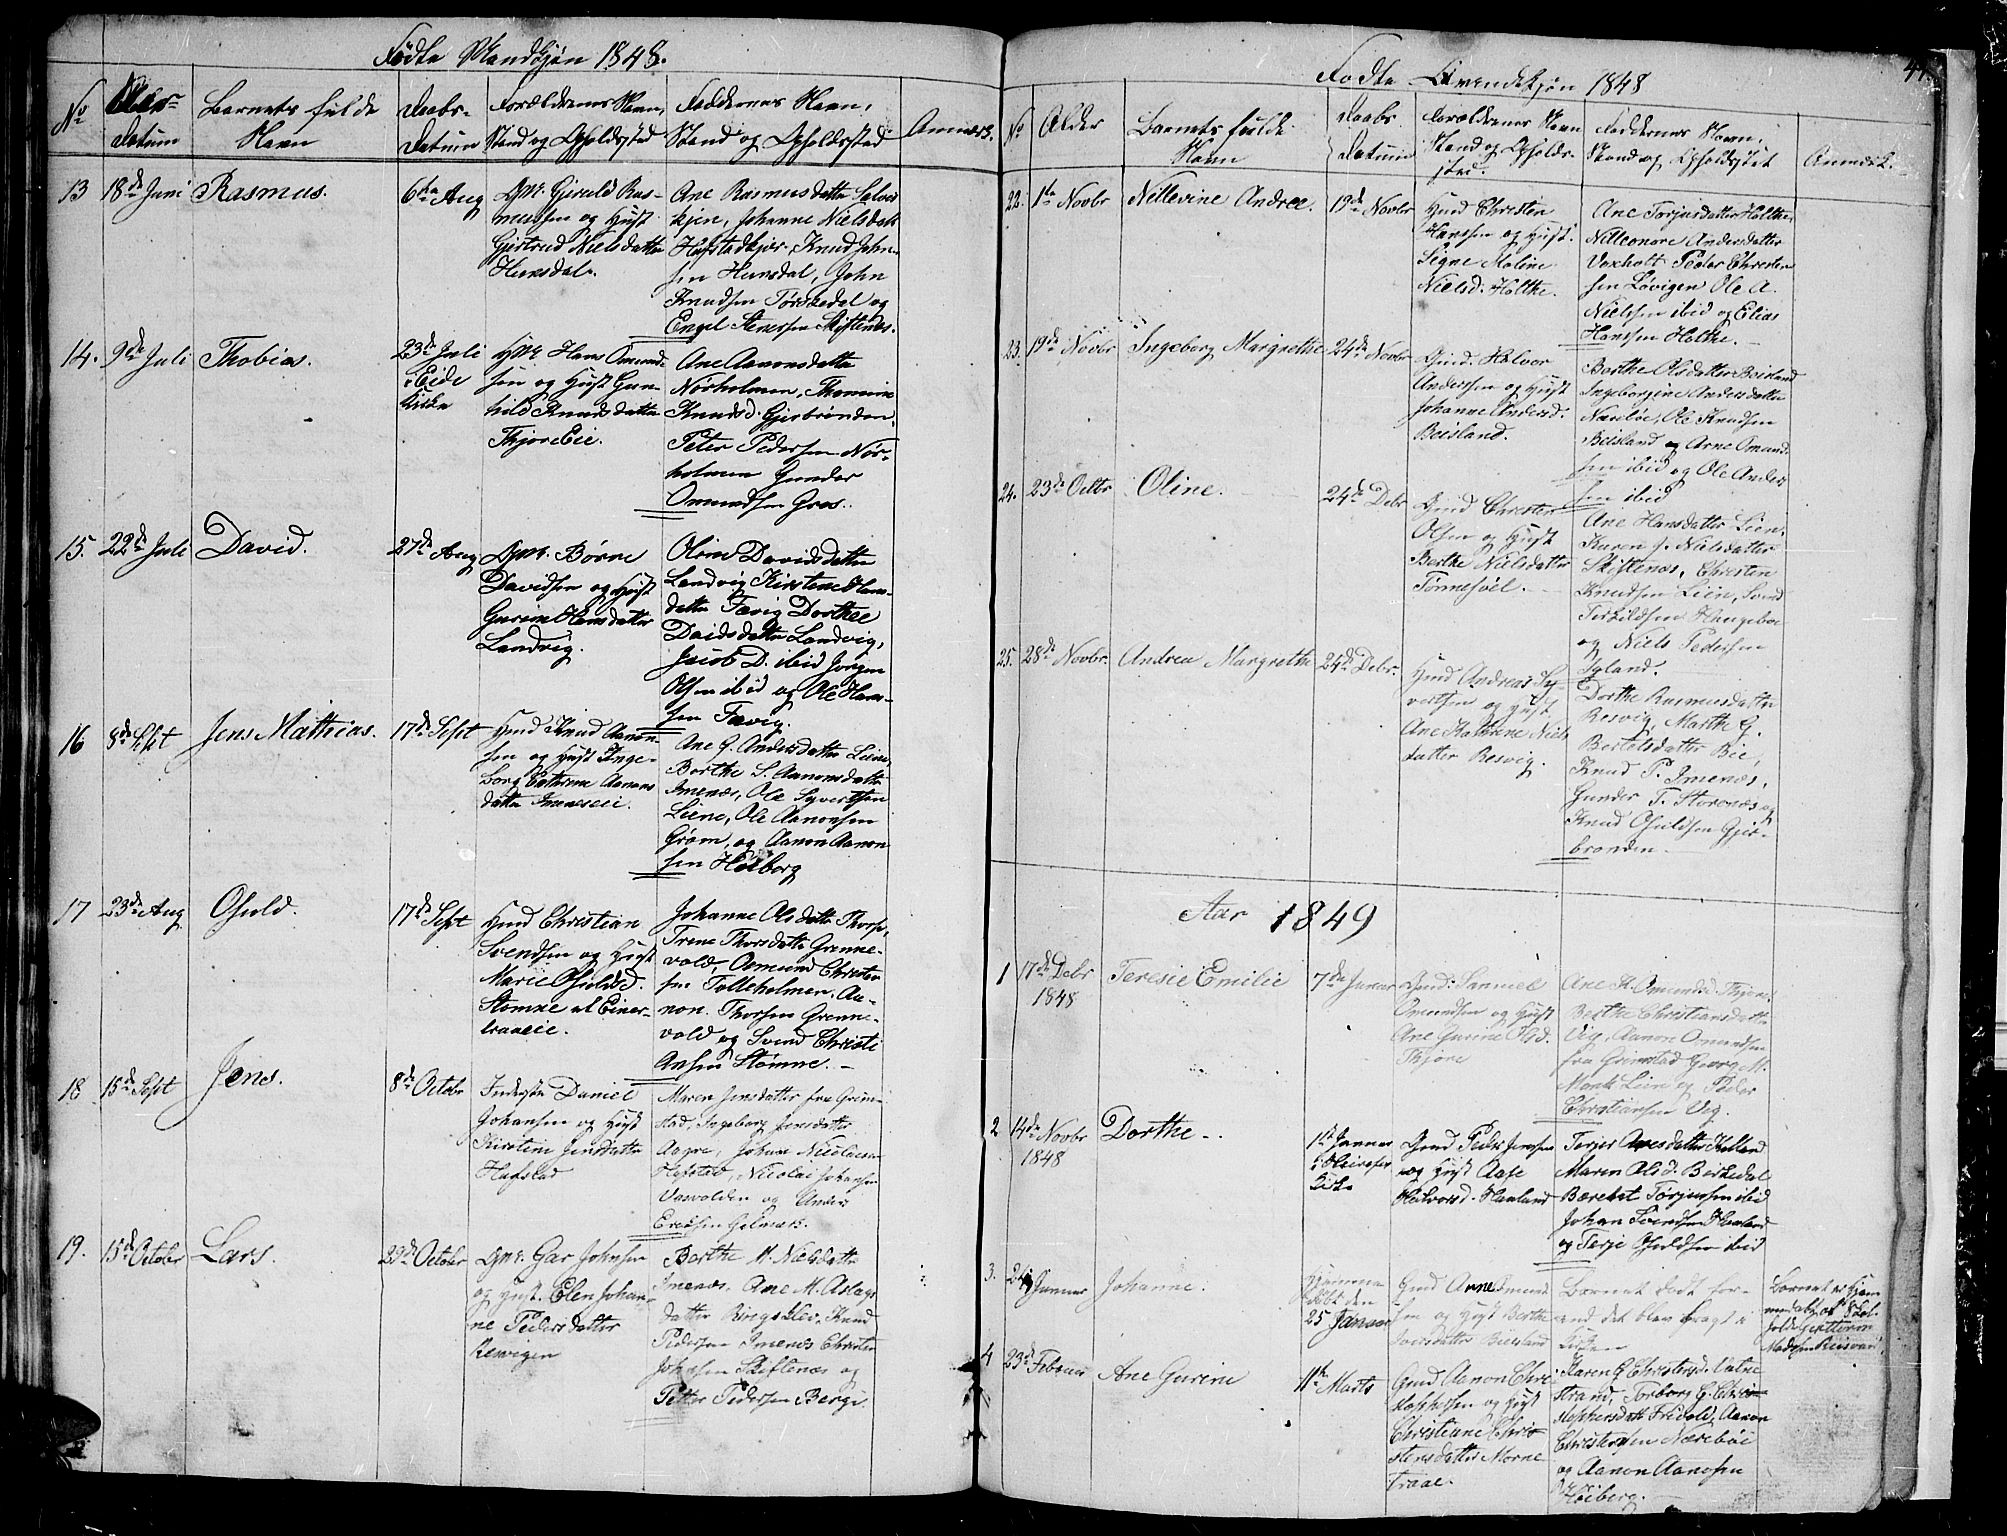 Fødte Mandkjøn 1848.
No
Datum
Barnets fulde
Navn
Daabs-
Datum
Forældrenes Navn,
Stand og Opholdssted
Faddernes Navn,
Stand og Opholdssted
Anmærk.
13
18de Juni
Rasmus.
6te Aug
Gmd. Gjeruld Ras-
mussen og Hust
Gjertrud Nielsdatter
Ane Rasmusdatter
Johanne Nielsdatt
Knud John-
sen
John
Knudsen Tørskedal og
Engel Stensen Skiftenæs.
14.
9de Juli
Thobias.
23de Juli
i Eide
Kirke
Hans Omund-
sen og Hust Gun-
hild Knudsdatter
Ane Aanonsdatter
Nørholmen,
Knudsd. Gjerbrønden.
Peter Pedersen Nør-
holmen Gunder
Omundsen Groos.
15.
22de Juli
David.
27de Aug
Gmd. Børne
Davidsen og Hust
Gurine Hansdatter
Landvig.
Oline Davidsdatter
Landvig Kirstine Hans-
datter Fævig Dorthee
Daidsdatter Landvig,
Jacob D. ibid Jørgen
Olsen ibid og Ole Han-
sen Fævig.
16
8de Sept
Jens Mathias.
17de Sept
Hmd Knud Aanon-
sen og Hust Inge-
borg Catrine Aanons
datter Imenæseie.
Ane G. Andersdatter Leine,
Berthe S. Aanonsdatter
Imenæs, Ole Syvertsen
Leine, Ole Aanonsen
Grøm, og Aanon Aanon
sen Høiborg
17
23de Aug
Osuld.
17de Sept
Hmd Christian
Svendsen og Hust
Marie Osuldsd.
Stømne
Johanne Olsdatter
Trine Thorsdatter Grenne-
vold, Osmund Christen
sen Tolleholmen, Aa-
non. Thorsen Grenne-
vold og Svend Christi
Ansen Stømne.
18
15de Sept
Jens.
8de October
Inderste Daniel
Johansen og Hust
Kirstine Jensdatter
Hafstad
Maren Jensdatter fra Grim-
stad, Ingeborg Jensdatter
Aagre, Johan Nicolaisen
Hafstad, Nicolai Johansen
og Anders
Ericsen
19.
15de October
Lars.
29de October
Gmd. Gar Johnsen
og Hust. Elen Johan-
ne Pedersdatter
Resvigen
Berthe M. Nielsdatter
Imenæs, Ane M. Aslags
datter Ringsklev, Knud
Pedersen Imenæs Christen
Johnsen Skiftenæs og
Petter Pedersen Berge.
Fødte Qvindekjøn 1848
No
Alder
Barnets fulde
Navn
Daabs
Datum
Forældrenes Navn
Stand og Opholds-
sted.
Faddernes Navn,
Stand og Opholdssted
Anmærk.
22.
1te Novbr
Nillevine Andree.
19de Novbr
Hmd Christen
Hansen og Hust.
Signe Maline
Nielsd. Holthe.
Ane Torjusdatter Holthe,
Nilleonore Andersdatter
Voxholt Peder Christen
sen Løvigen Ole A.
Nielsen ibid og Elias
Hansen Holthe.
23.
19de Novbr
Ingeborg Margrethe
24de Novbr
Gmd. Halvor
Andersen og Hust
Johanne Andersd.
Beisland.
Berthe Olsdatter Beisland
Ingeborgine Andersdatter
Ole Knudsen
Beisland og Arne Omund
sen ibid og Ole Ander
sen ibid
24.
23de Octbr
Oline.
24de Debr
Gmd Christen
Olsen og Hust
Berthe Nielsdatter
Tønnesøl.
Ane Hansdatter Lien,
Karen J. Nielsdatter
Skiftenæs, Christen
Knudsen Lien, Svend
Terkildsen Haugeboe
og Niels Pedersen
Igland.
25.
28de Novbr.
Andrea Margrethe
24de Debr
Hmd Andreas Sy-
vertsen og Hust
Ane Kathrine Niels
datter Resvig.
Dorthe Rasmusdatter
Resvig, Marthe G.
Bertelsdatter Bie,
Knud P. Imenæs,
Gunder T. Storenæs og
Knud Osuldsen Gjer-
brønden.
Aar 1849
1
17de Debr
1848
Teresie Emilie
7de Januar
Gmd. Samuel
Omundsen og Hust
Ane Gurine Olsd.
Thjøre
Ane K. Omundsd. Thjøre.
Berthe Christiansdatter
Vig, Aanon Omundsen
fra Grimstad Georg M.
Lien og Peder
Christiansen Vig.
2
14de Novbr
1848
Dorthe.
1te Januar
Kirke
Gmd Peder Jensen
og Hust Aase
Halvorsd. Haaland
Terjer Anesdatter Haaland
Maren Olsd. Birkedal
Bærent Torjussen ibid
Johan Svendsen Haaland
og Terje Osuldsen ibid
3.
24 Januar
Johanne.
Hjemme
døbt den
25 Januar
Gmd Anne Omund
sen og Hust Berthe
Iversdatter Beisland
Barnet dødt før-
end det blev bragt i
Kirken
Barnet er Hjem
medøbt af
Madsen
4
23de Februar
Ane Gurine
11te Marts
Gmd Aanon Chri-
stophersen og Hust
Christiane Chri-
stensdatter Morne-
traae.
Karen G Christensd. Vatne
strand, Torborg G. Chri-
stophersdatt Frivold, Aanon
Christensen Nærebøe
og Aanon Aanosen
Høiberg.